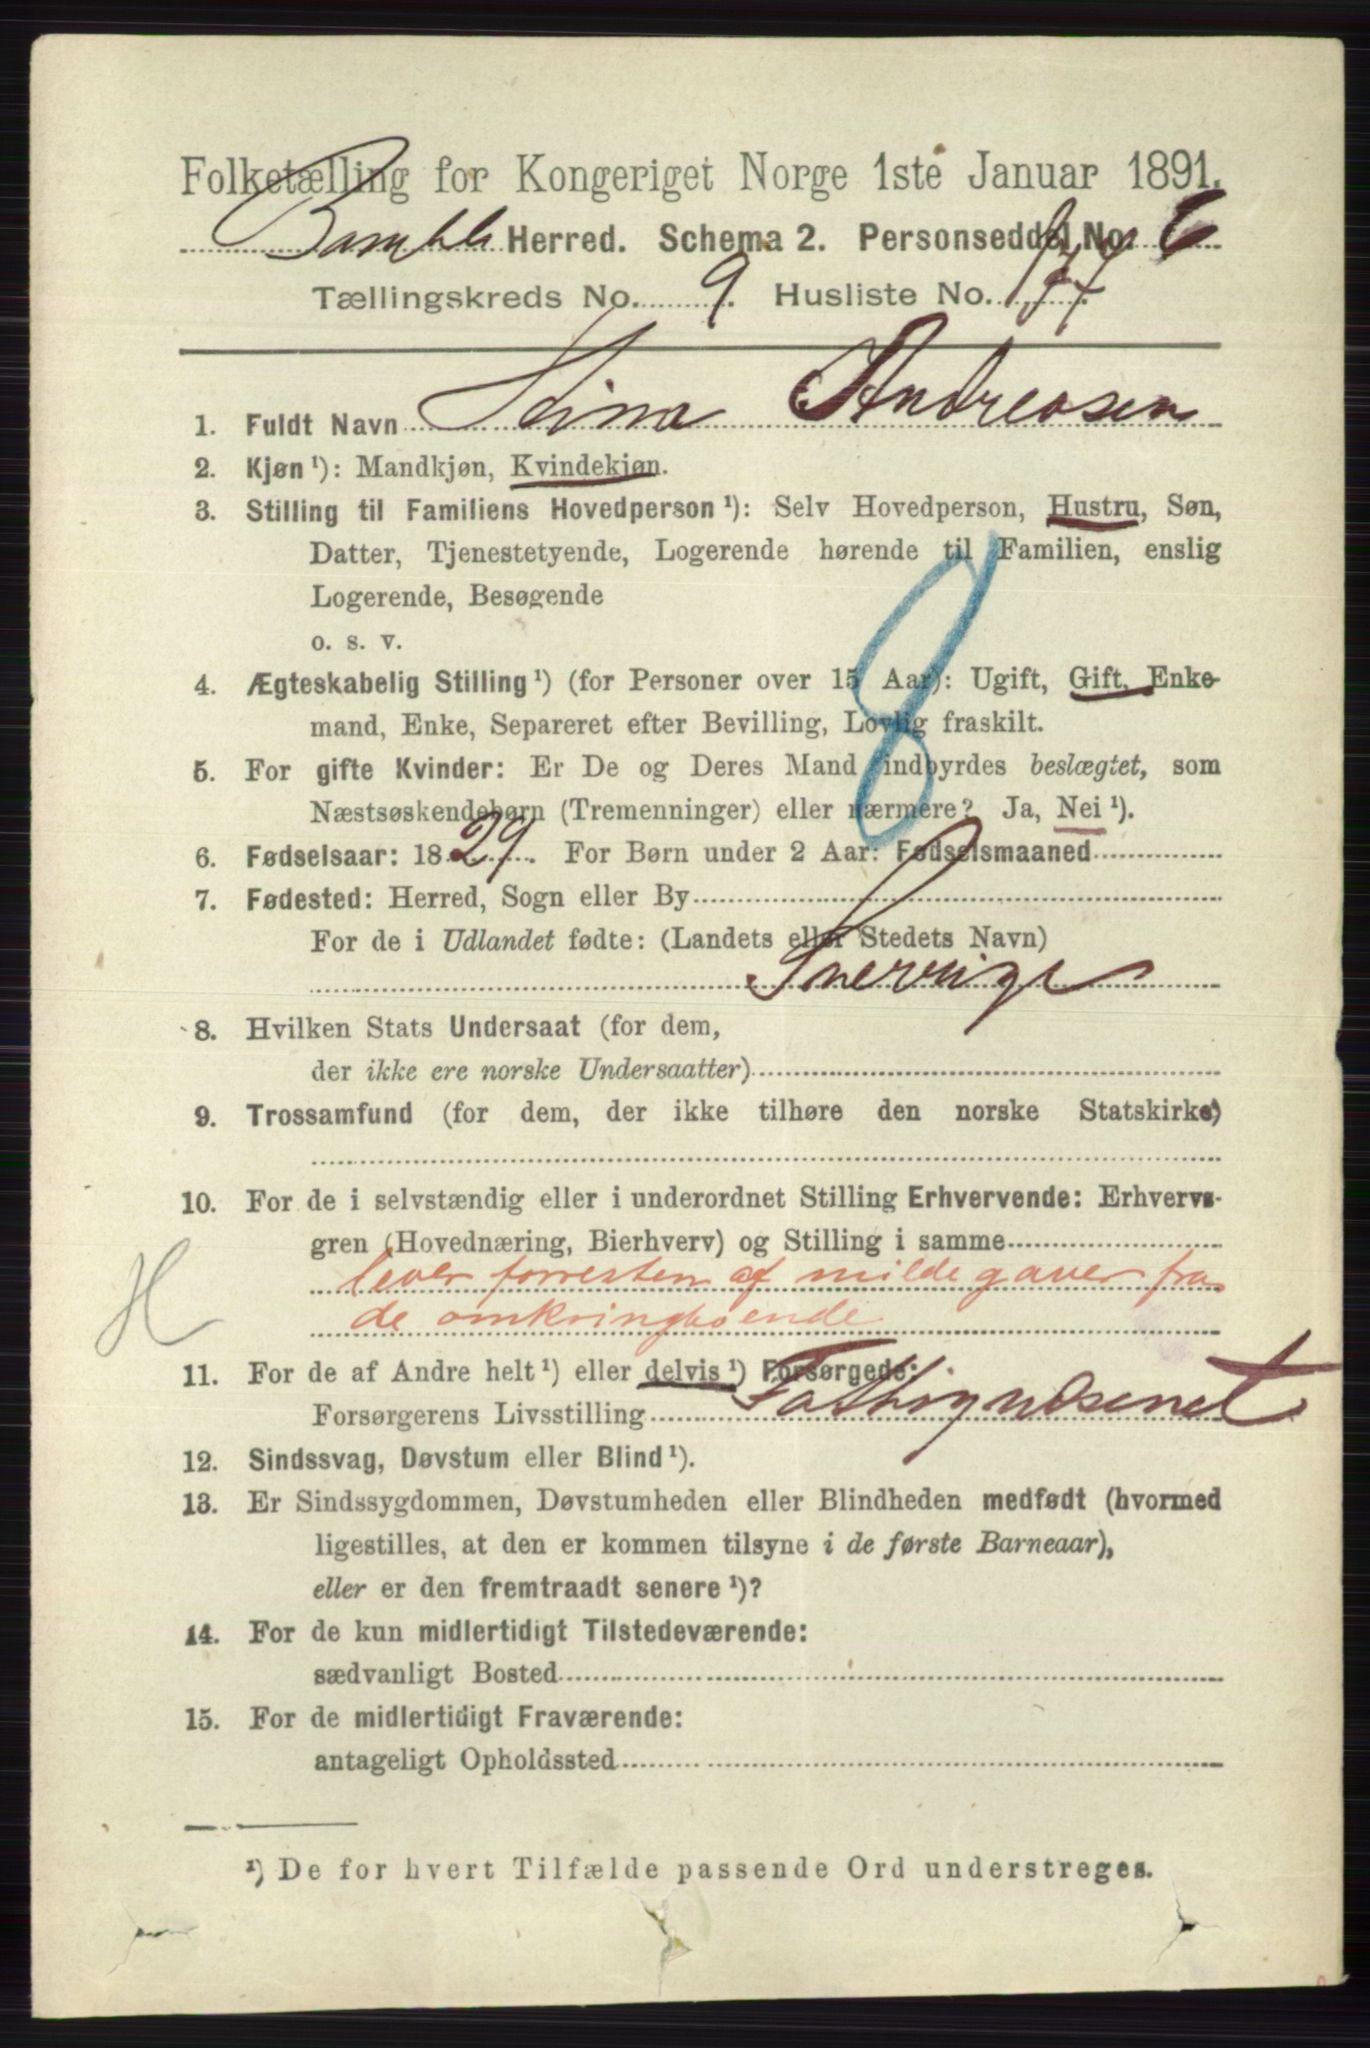 Folketælling for Kongeriget Norge 1ste Januar 1891.
Bamble Herred. Schema 2. Personseddel No. 6
Tællingskreds No. 9. Husliste No.
1. Fuldt Navn Stina Andreasen
2. Kjøn ¹): Mandkjøn, Kvindekjøn.
3. Stilling til Familiens Hovedperson ¹): Selv Hovedperson, Hustru, Søn,
Datter, Tjenestetyende, Logerende hørende til Familien, enslig
Logerende, Besøgende
o. s. v.
4. Ægteskabelig Stilling ¹) (for Personer over 15 Aar): Ugift, Gift, Enke-
mand, Enke, Separeret efter Bevilling, Lovlig fraskilt.
5. For gifte Kvinder: Er De og Deres Mand indbyrdes beslægtet, som
Næstsøskendebørn (Tremenninger) eller nærmere? Ja, Nei ¹).
8
6. Fødselsaar: 1829. For Børn under 2 Aar: Fødselsmaaned
7. Fødested: Herred, Sogn eller By
For de i Udlandet fødte: (Landets eller Stedets Navn)
Sverrige
8. Hvilken Stats Undersaat (for dem,
der ikke ere norske Undersaatter)
9. Trossamfund (for dem, der ikke tilhøre den norske Statskirke)
10. For de i selvstændig eller i underordnet Stilling Erhvervende: Erhvervs-
gren (Hovednæring, Bierhverv) og Stilling i samme
lever forresten af milde gaver fra
de omkringboende
H
11. For de af Andre helt ¹) eller delvis ¹) Forsørgede:
Forsørgerens Livsstilling Fattigvæsenet
12. Sindssvag, Døvstum eller Blind ¹).
13. Er Sindssygdommen, Døvstumheden eller Blindheden medfødt (hvormed
ligestilles, at den er kommen tilsyne i de første Barneaar),
eller er den fremtraadt senere ¹)?
14. For de kun midlertidigt Tilstedeværende:
sædvanligt Bosted
15. For de midlertidigt Fraværende:
antageligt Opholdssted
¹) De for hvert Tilfælde passende Ord understreges.